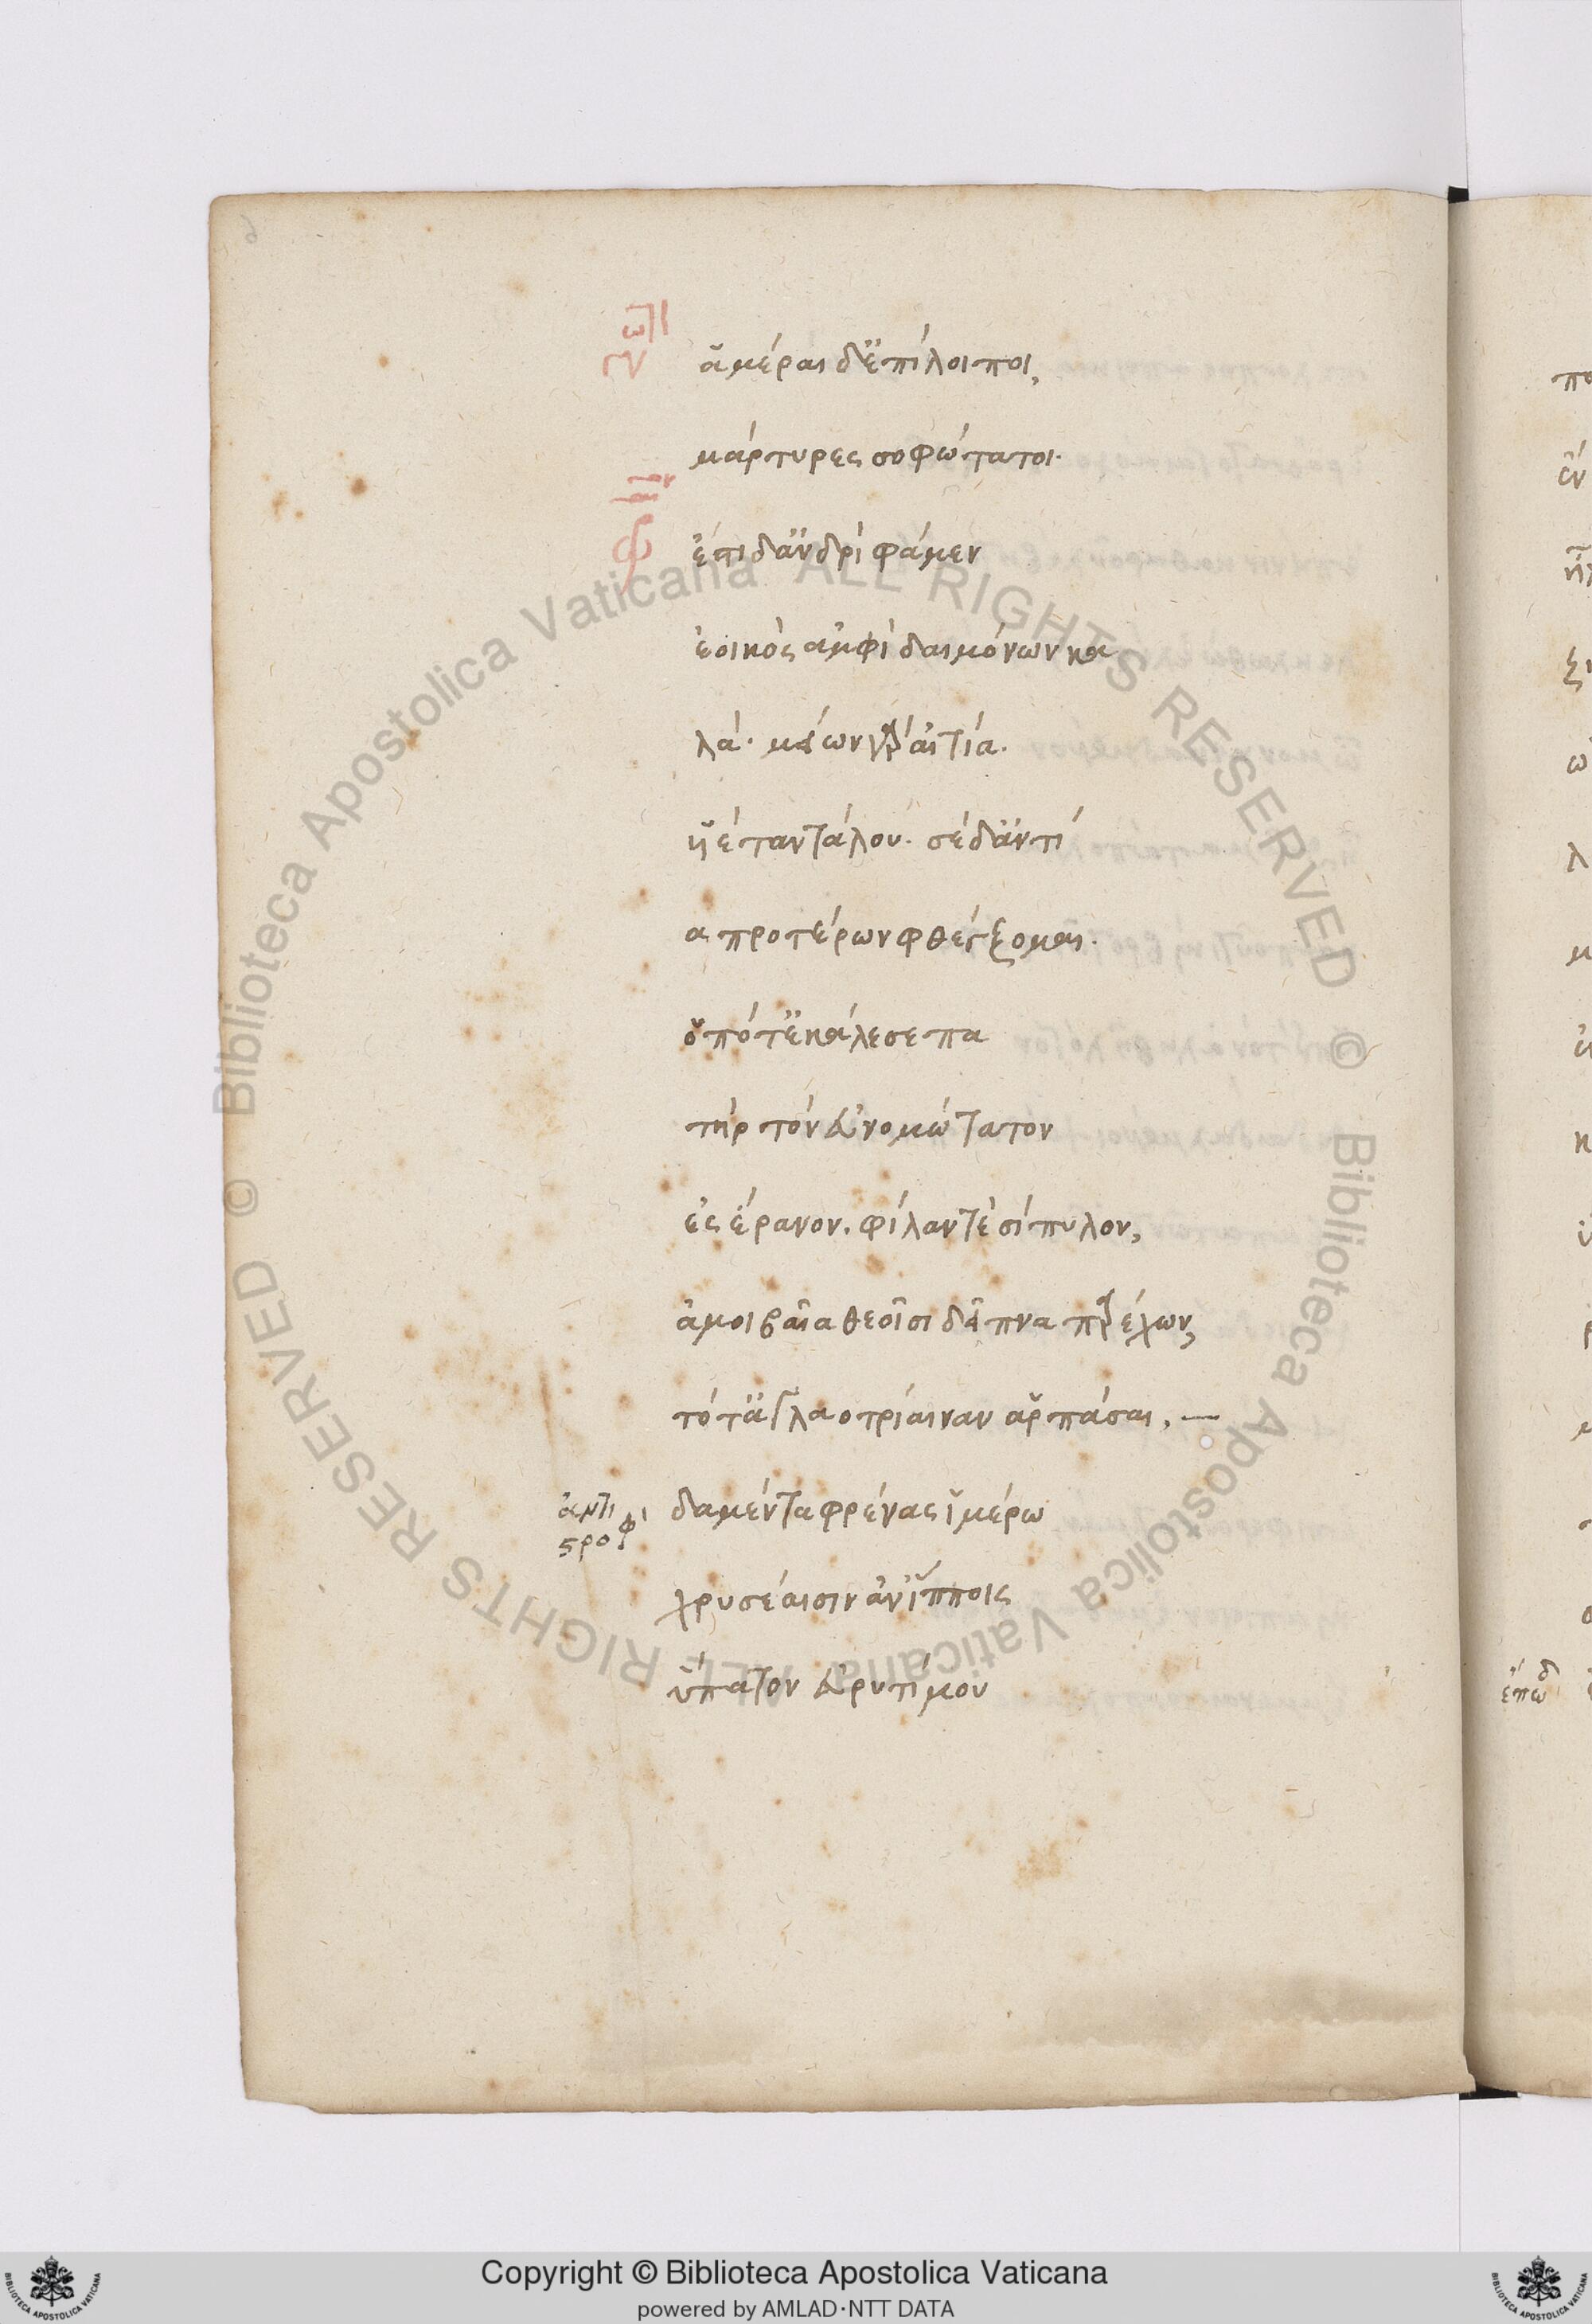 ἁμέραι δ' ἐπίλοιποι,
μάρτυρες σοφώτατοι.
ἔστι δ' ἀνδρὶ φάμεν
ἐοικὸς ἀμφὶ δαιμόνων κα
λά. μείων γὰρ αἰτία.
υἱὲ ταντάλου. σὲ δ' ἀντί
α προτέρων φθέγξομαι.
ὁπότ' ἐκάλεσε πα
τὴρ τὸν εὐνομώτατον
ἐς ἔρανον. φίλαν τὲ σίπυλον,
ἀμοιβαῖα θεοῖσι δεῖπνα παρέχων,
τότ' ἀγλαοτρίαιναν ἁρπάσαι. —
ἀντιστροφὴ
δαμέντα φρένας ἱμέρω
χρυσέαισιν ἀν' ἵπποις
ὕπατον εὐρυτίμου
Copyright © Biblioteca Apostolica Vaticana
powered by AMLAD·NTT DATA
© Biblioteca Apostolica Vaticana ALL RIGHTS RESERVED
© Biblioteca Apostolica Vaticana ALL RIGHTS RESERVED
BIBLIOTECA APOSTOLICA VATICANA
BIBLIOTECA APOSTOLICA VATICANA